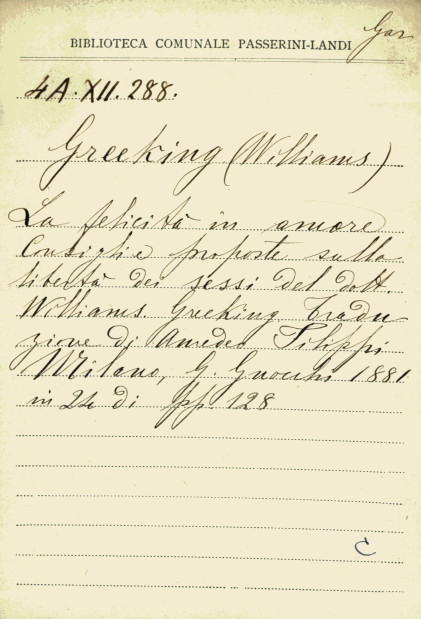 Gar
BIBLIOTECA COMUNALE PASSERINI-LANDI
4A.XII.288.
Greeking (Williams)
La felicità in amore
Consigli e proposte sulla
libertà dei sessi del dott.
Williams Greeking Tradu-
zione di Amedeo Filippi
Milano, G. Gnocchi 1881
in 24 di pp. 128
C